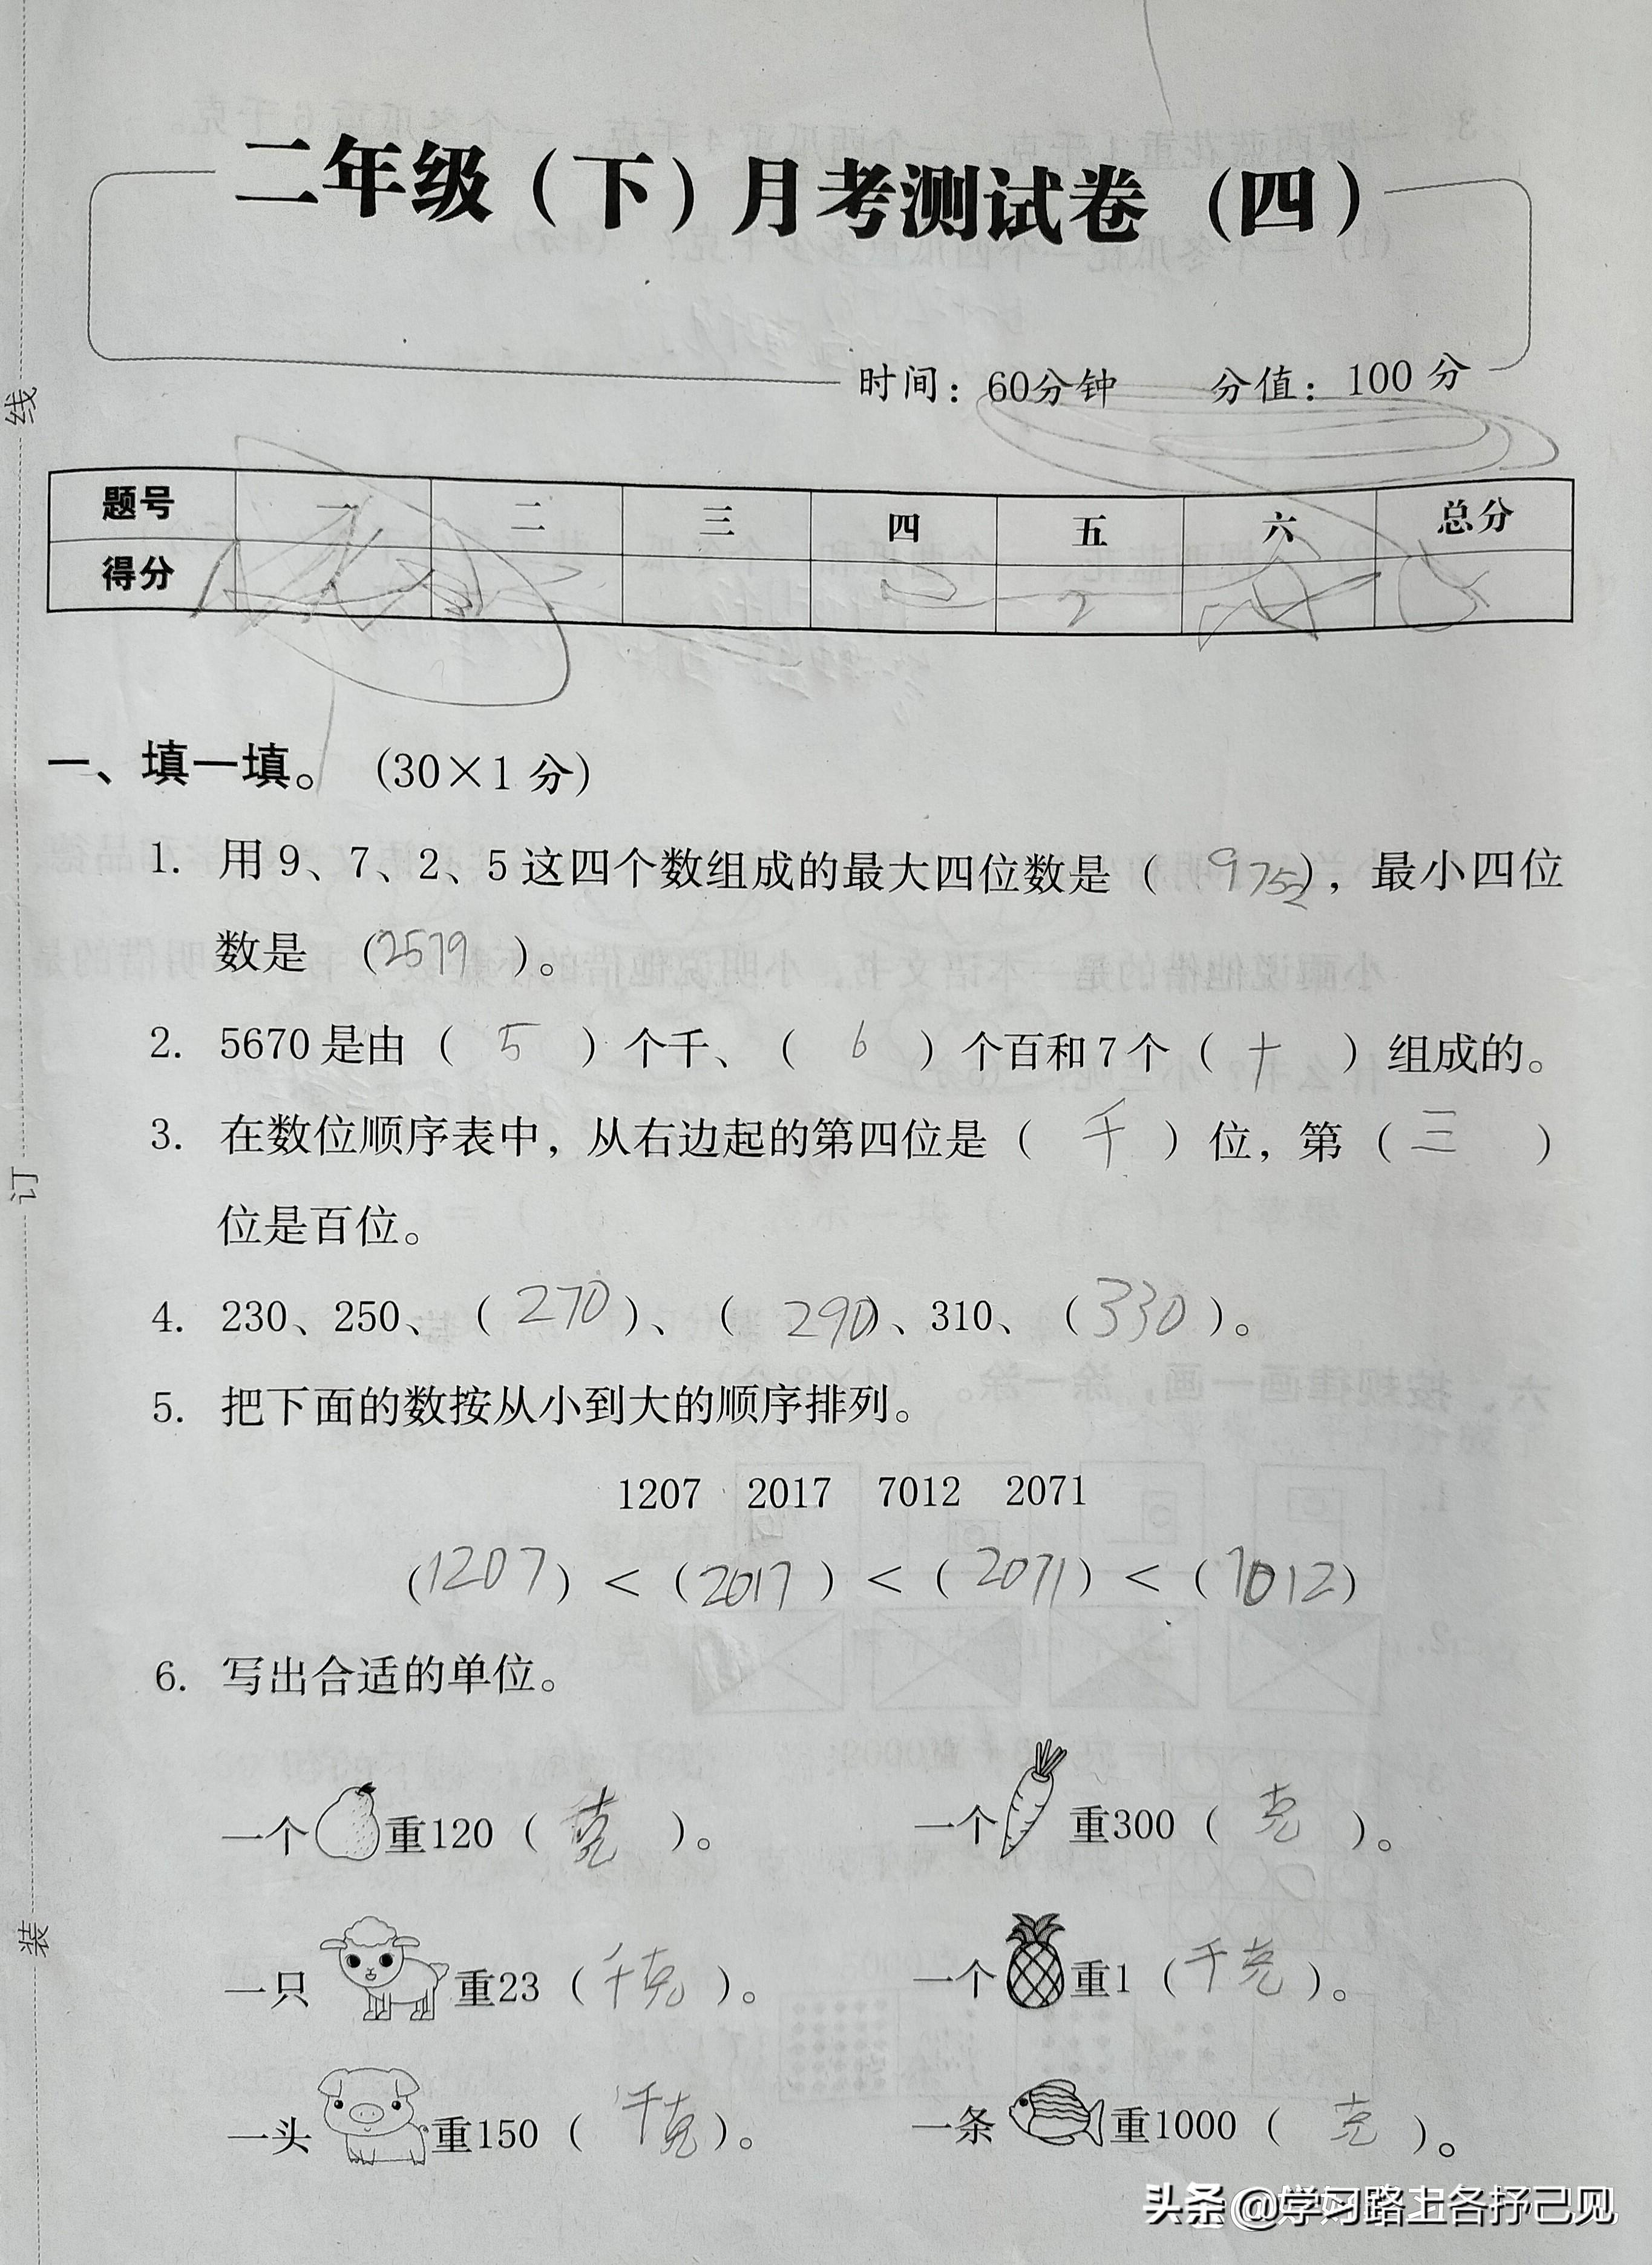 二年级（下）月考测试卷（四）
时间：60分钟 分值：100分
题号 一 二 三 四 五 六 总分
得分
一、填一填。（30×1分）
1. 用9、7、2、5这四个数组成的最大四位数是（9752），最小四位
数是（2579）。
2. 5670是由（5）个千、（6）个百和7个（十）组成的。
3. 在数位顺序表中，从右边起的第四位是（千）位，第（三）
位是百位。
4. 230、250、（270）、（290）、310、（330）。
5. 把下面的数按从小到大的顺序排列。
1207 2017 7012 2071
（1207）＜（2017）＜（2071）＜（7012）
6. 写出合适的单位。
一个重120（克）。 一个重300（克）。
一只重23（千克）。 一个重1（千克）。
一头重150（千克）。 一条重1000（克）。
线
订
装
头条@学习路上各抒己见